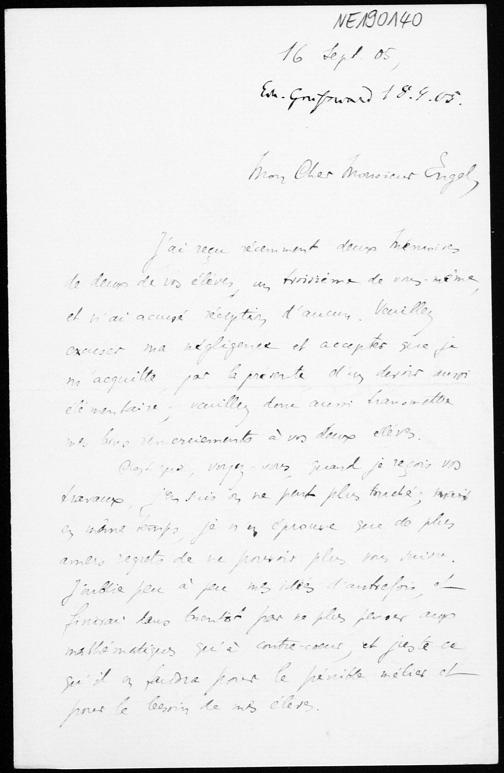 NE190140
16 Sept. 05,
18.9.05.
Mon Cher Monsieur Engel,
J'ai reçu récemment deux Mémoires
de deux de vos élèves, un troisième de vous-même,
et n'ai accusé réception d'aucun. Veuillez
excuser ma négligence et accepter que je
m'acquitte par la présente d'un devoir aussi
élémentaire; veuillez donc aussi transmettre
mes bons remerciements à vos deux élèves.
C'est que, voyez-vous, quand je reçois vos
travaux, j'en suis on ne peut plus touché; mais
en même temps je n'en éprouve que de plus
amers regrets de ne pouvoir plus vous suivre.
J'oublie peu à peu mes idées d'autrefois, et
finirai bientôt par ne plus penser aux
mathématiques qu'à contre-coeur, et juste ce
qu'il en faudra pour le pénible métier et
pour le besoin de mes élèves.